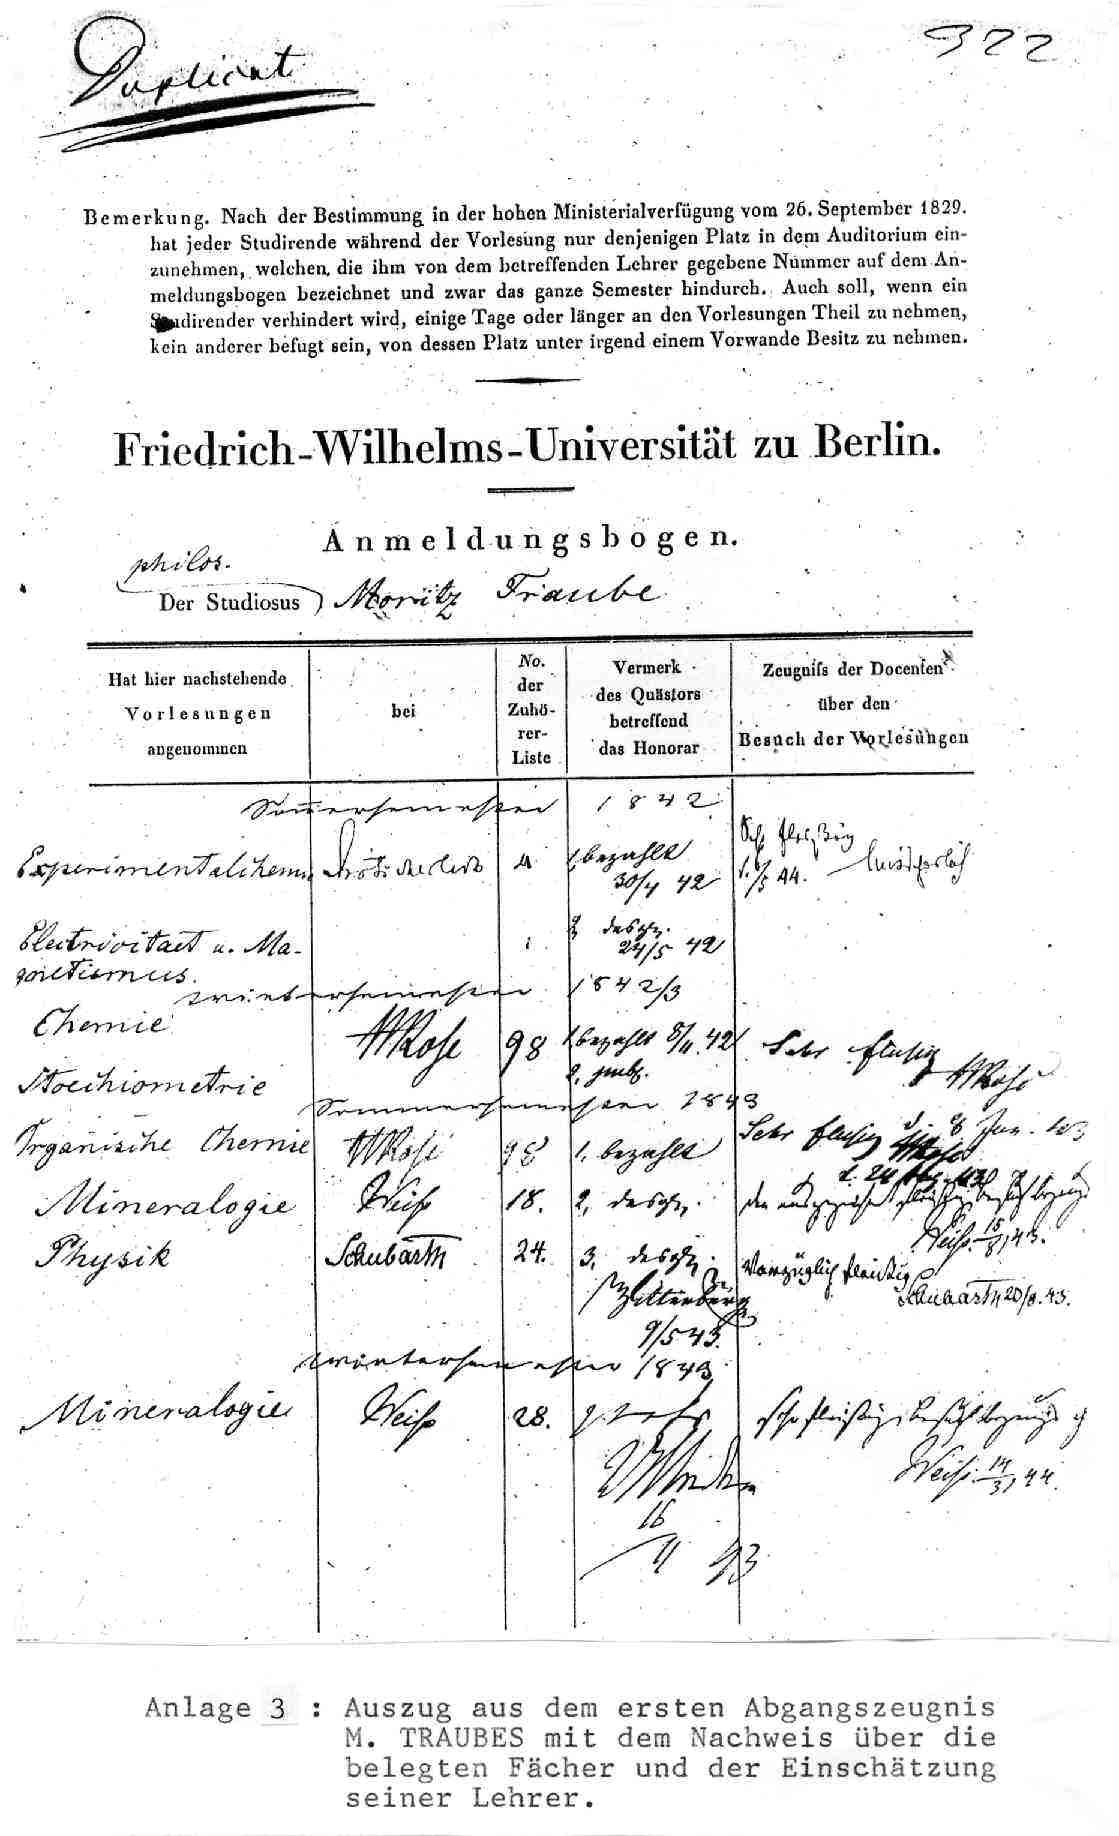 Duplicat
322
Bemerkung. Nach der Bestimmung in der hohen Ministerialverfügung vom 26. September 1829.
hat jeder Studirende während der Vorlesung nur denjenigen Platz in dem Auditorium ein-
zunehmen, welchen die ihm von dem betreffenden Lehrer gegebene Nummer auf dem An-
meldungsbogen bezeichnet und zwar das ganze Semester hindurch. Auch soll, wenn ein
Studirender verhindert wird, einige Tage oder länger an den Vorlesungen Theil zu nehmen,
kein anderer befugt sein, von dessen Platz unter irgend einem Vorwande Besitz zu nehmen.
Friedrich-Wilhelms-Universität zu Berlin.
Anmeldungsbogen.
philos.
Der Studiosus Moritz Traube
Hat hier nachstehende
Vorlesungen
angenommen
bei
No.
der
Zuhö-
rer-
Liste
Vermerk
des Quästors
betreffend
das Honorar
Zeugniſs der Docenten
über den
Besuch der Vorlesungen
Sommersemester 1842
Experimentalchemie Mitscherlich 1 bezahlt Sehr fleißig
30/4 42 Mitscherlich
Electricitaet u. Ma- 2 desgl.
gnetismus. 24/5 42
Wintersemester 1842/3
Chemie HRose 98 1 bezahlt 8/11. 42 Sehr fleisig
Stoechiometrie 2. HRose
Sommersemester 1843
Organische Chemie HRose 98 1. bezahlt Sehr fleisig
HRose
Mineralogie Weiß 18. 2, desgl.
Weiß. 15/8, 43.
Physik Schubarth 24. 3. desgl. Vorzüglich fleißig
Schubarth 20/8. 43.
9/5 43.
Wintersemester 1843
Mineralogie Weiß 28. sehr fleißig
Weiß. 14/3, 44.
16
11 43
Anlage 3 : Auszug aus dem ersten Abgangszeugnis
M. TRAUBES mit dem Nachweis über die
belegten Fächer und der Einschätzung
seiner Lehrer.